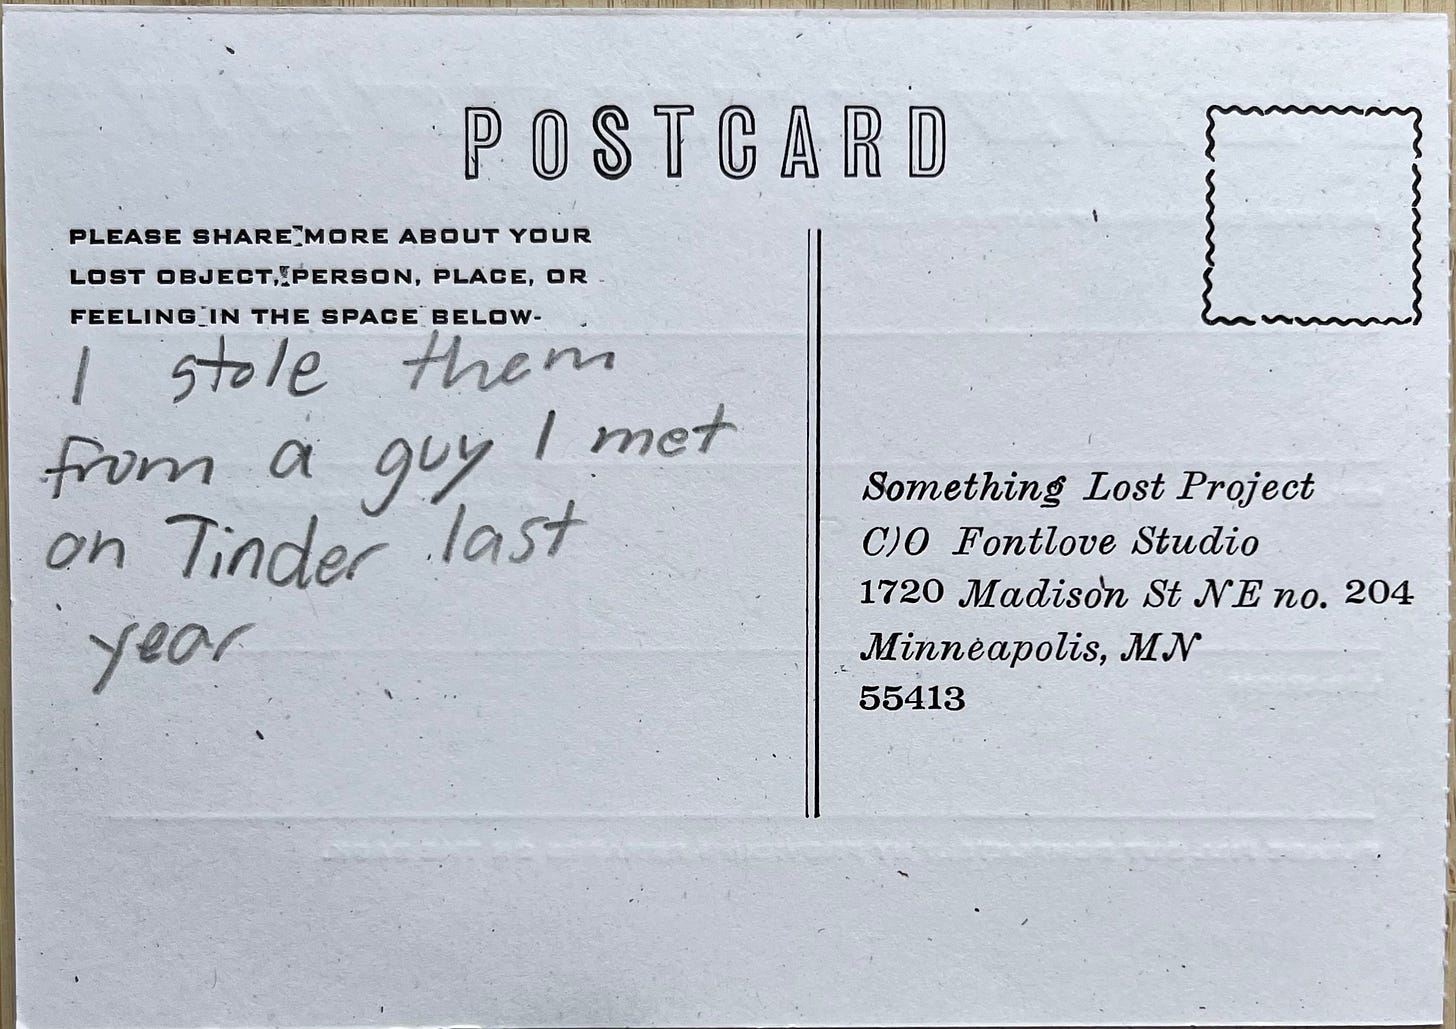 POSTCARD
PLEASE SHARE MORE ABOUT YOUR
LOST OBJECT, PERSON, PLACE, OR
FEELING IN THE SPACE BELOW-
I stole them
from a guy I met
on Tinder last
year
Something Lost Project
C)O Fontlove Studio
1720 Madison St NE no. 204
Minneapolis, MN
55413